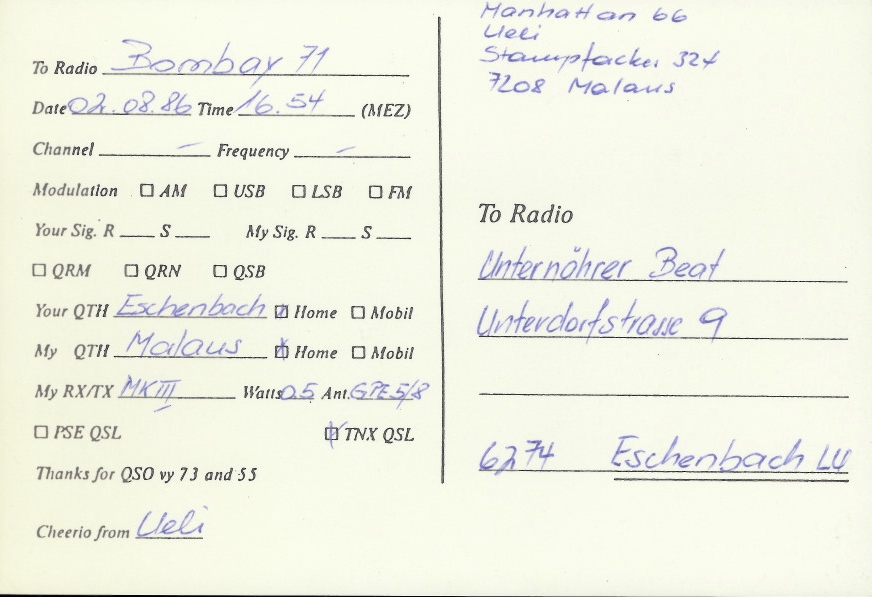 To Radio Bombay 71
Date 02.08.86 Time 16.54 (MEZ)
Channel – Frequency –
Modulation ☐ AM ☐ USB ☐ LSB ☐ FM
Your Sig. R ___ S ___ My Sig. R ___ S ___
☐ QRM ☐ QRN ☐ QSB
Your QTH Eschenbach ☒ Home ☐ Mobil
My QTH Malans ☒ Home ☐ Mobil
My RX/TX MK III Watts 0.5 Ant. GPE 5/8
☐ PSE QSL ☒ TNX QSL
Thanks for QSO vy 73 and 55
Cheerio from Ueli
Manhattan 66
Ueli
324
7208 Malans
To Radio
Unternährer Beat
Unterdorfstrasse 9
6274 Eschenbach LU